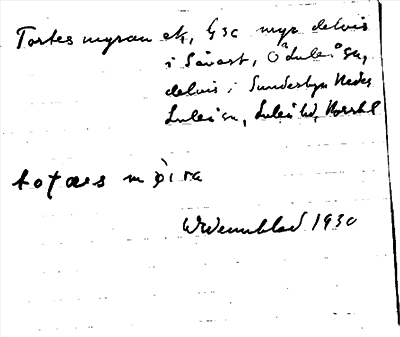 Tortes myran ek, Gsc myr delvis
i Sävast, Ö Luleå sn,
delvis i Sunderbyn Neder
Luleå sn, Luleå hd, Norrb l
totæs mỳra
W Wennblad 1930